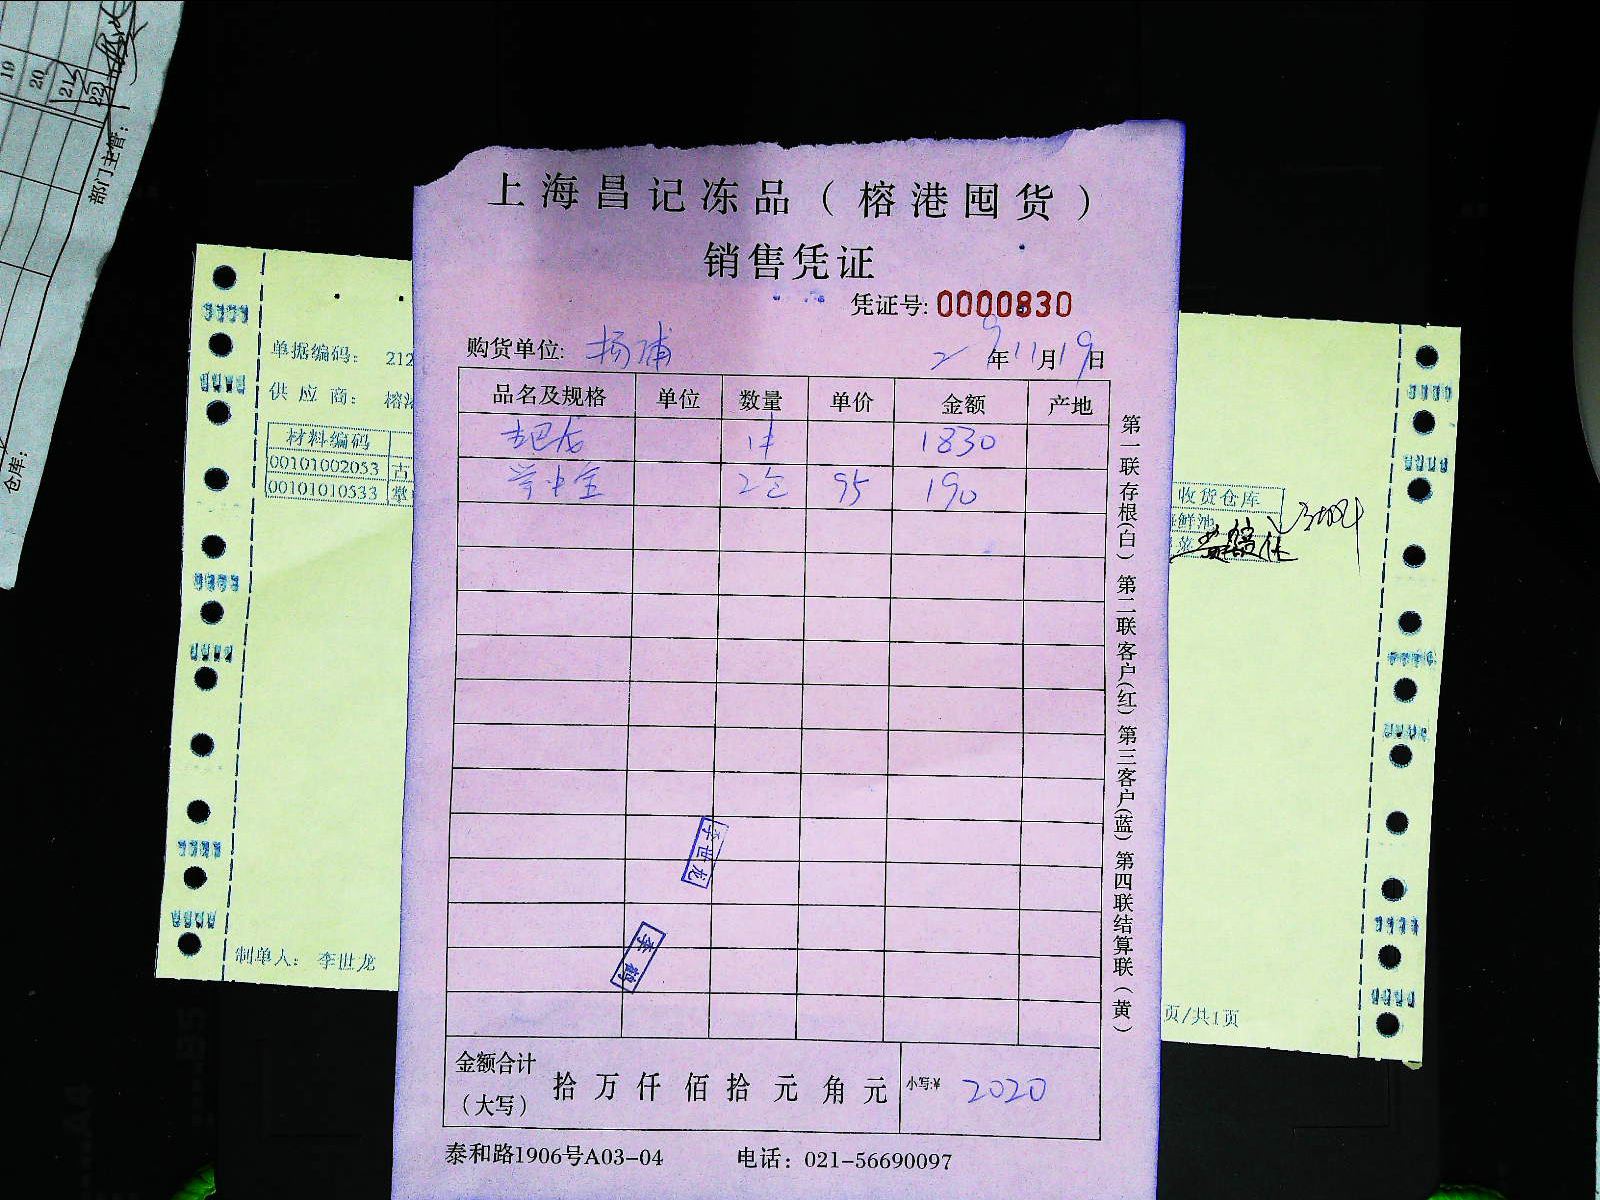 19
20
21
22
部门主管：
仓库：
上海昌记冻品（榕港囤货）
销售凭证
凭证号: 0000830
购货单位: 杨浦 年11月19日
品名及规格 单位 数量 单价 金额 产地
1件 1830
掌中宝 2包 95 190
第一联存根(白) 第二联客户(红) 第三客户(蓝) 第四联结算联(黄)
李世龙
李鹤
金额合计
（大写） 拾 万 仟 佰 拾 元 角 元 小写:¥ 2020
泰和路1906号A03-04 电话：021-56690097
单据编码： 212
供 应 商： 榕港
材料编码
00101002053 古
00101010533 掌
制单人： 李世龙
收货仓库
海鲜池
页/共1页